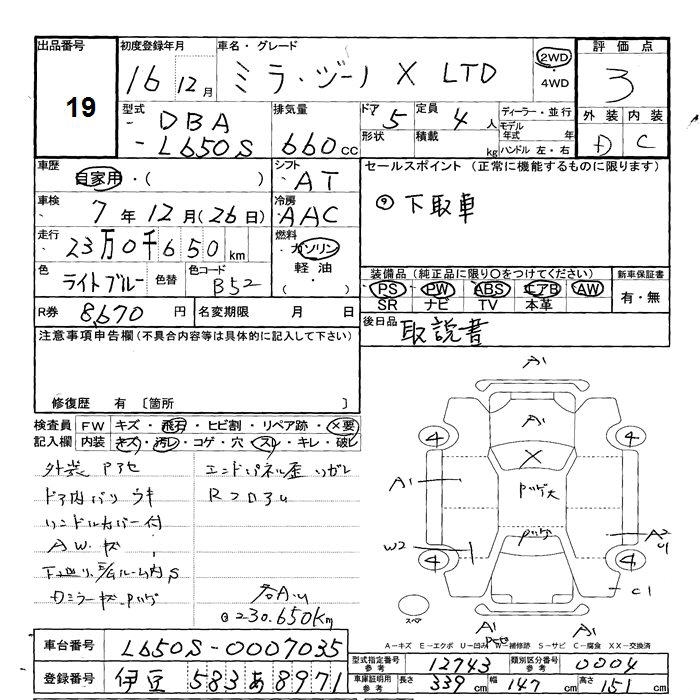 出品番号
19
初度登録年月
16 12月
車名・グレード
ミラ・ジーノ X LTD
2WD
・4WD
評価点
3
型式
DBA
-L650S
排気量
660cc
ドア 5
形状
定員 4人
積載 kg
ディーラー・並行
モデル年式 年
ハンドル 左・右
外装 内装
D C
車歴
自家用・( )
シフト
AT
セールスポイント(正常に機能するものに限ります)
⑨下取車
車検
7年12月(26日)
冷房
AAC
走行
23万0千650km
燃料
ガソリン
軽油
・( )
色
ライトブルー
色替
色コード
B52
装備品(純正品に限り○をつけてください)
PS PW ABS エアB AW
SR ナビ TV 本革
新車保証書
有・無
R券 8,670円
名変期限 月 日
後日品
取説書
注意事項申告欄(不具合内容等は具体的に記入して下さい)
修復歴 有〔箇所 〕
検査員
記入欄
FW キズ・飛石・ヒビ割・リペア跡・×要
内装 キズ・汚レ・コゲ・穴・スレ・キレ・破レ
外装
ハンドルカバー付
AW
②230.650km
A1
A1
4 4
X
A1
W2
A2
4 4
C1
スペア
A1
A1
A-キズ E-エクボ U-凹み W-補修跡 S-サビ C-腐食 XX-交換済
車台番号 L650S-0007035
登録番号 伊豆 583あ8971
型式指定番号
参考
12743
類別区分番号
参考
0004
車庫証明用
参考
長さ 339cm
幅 147cm
高さ 151cm